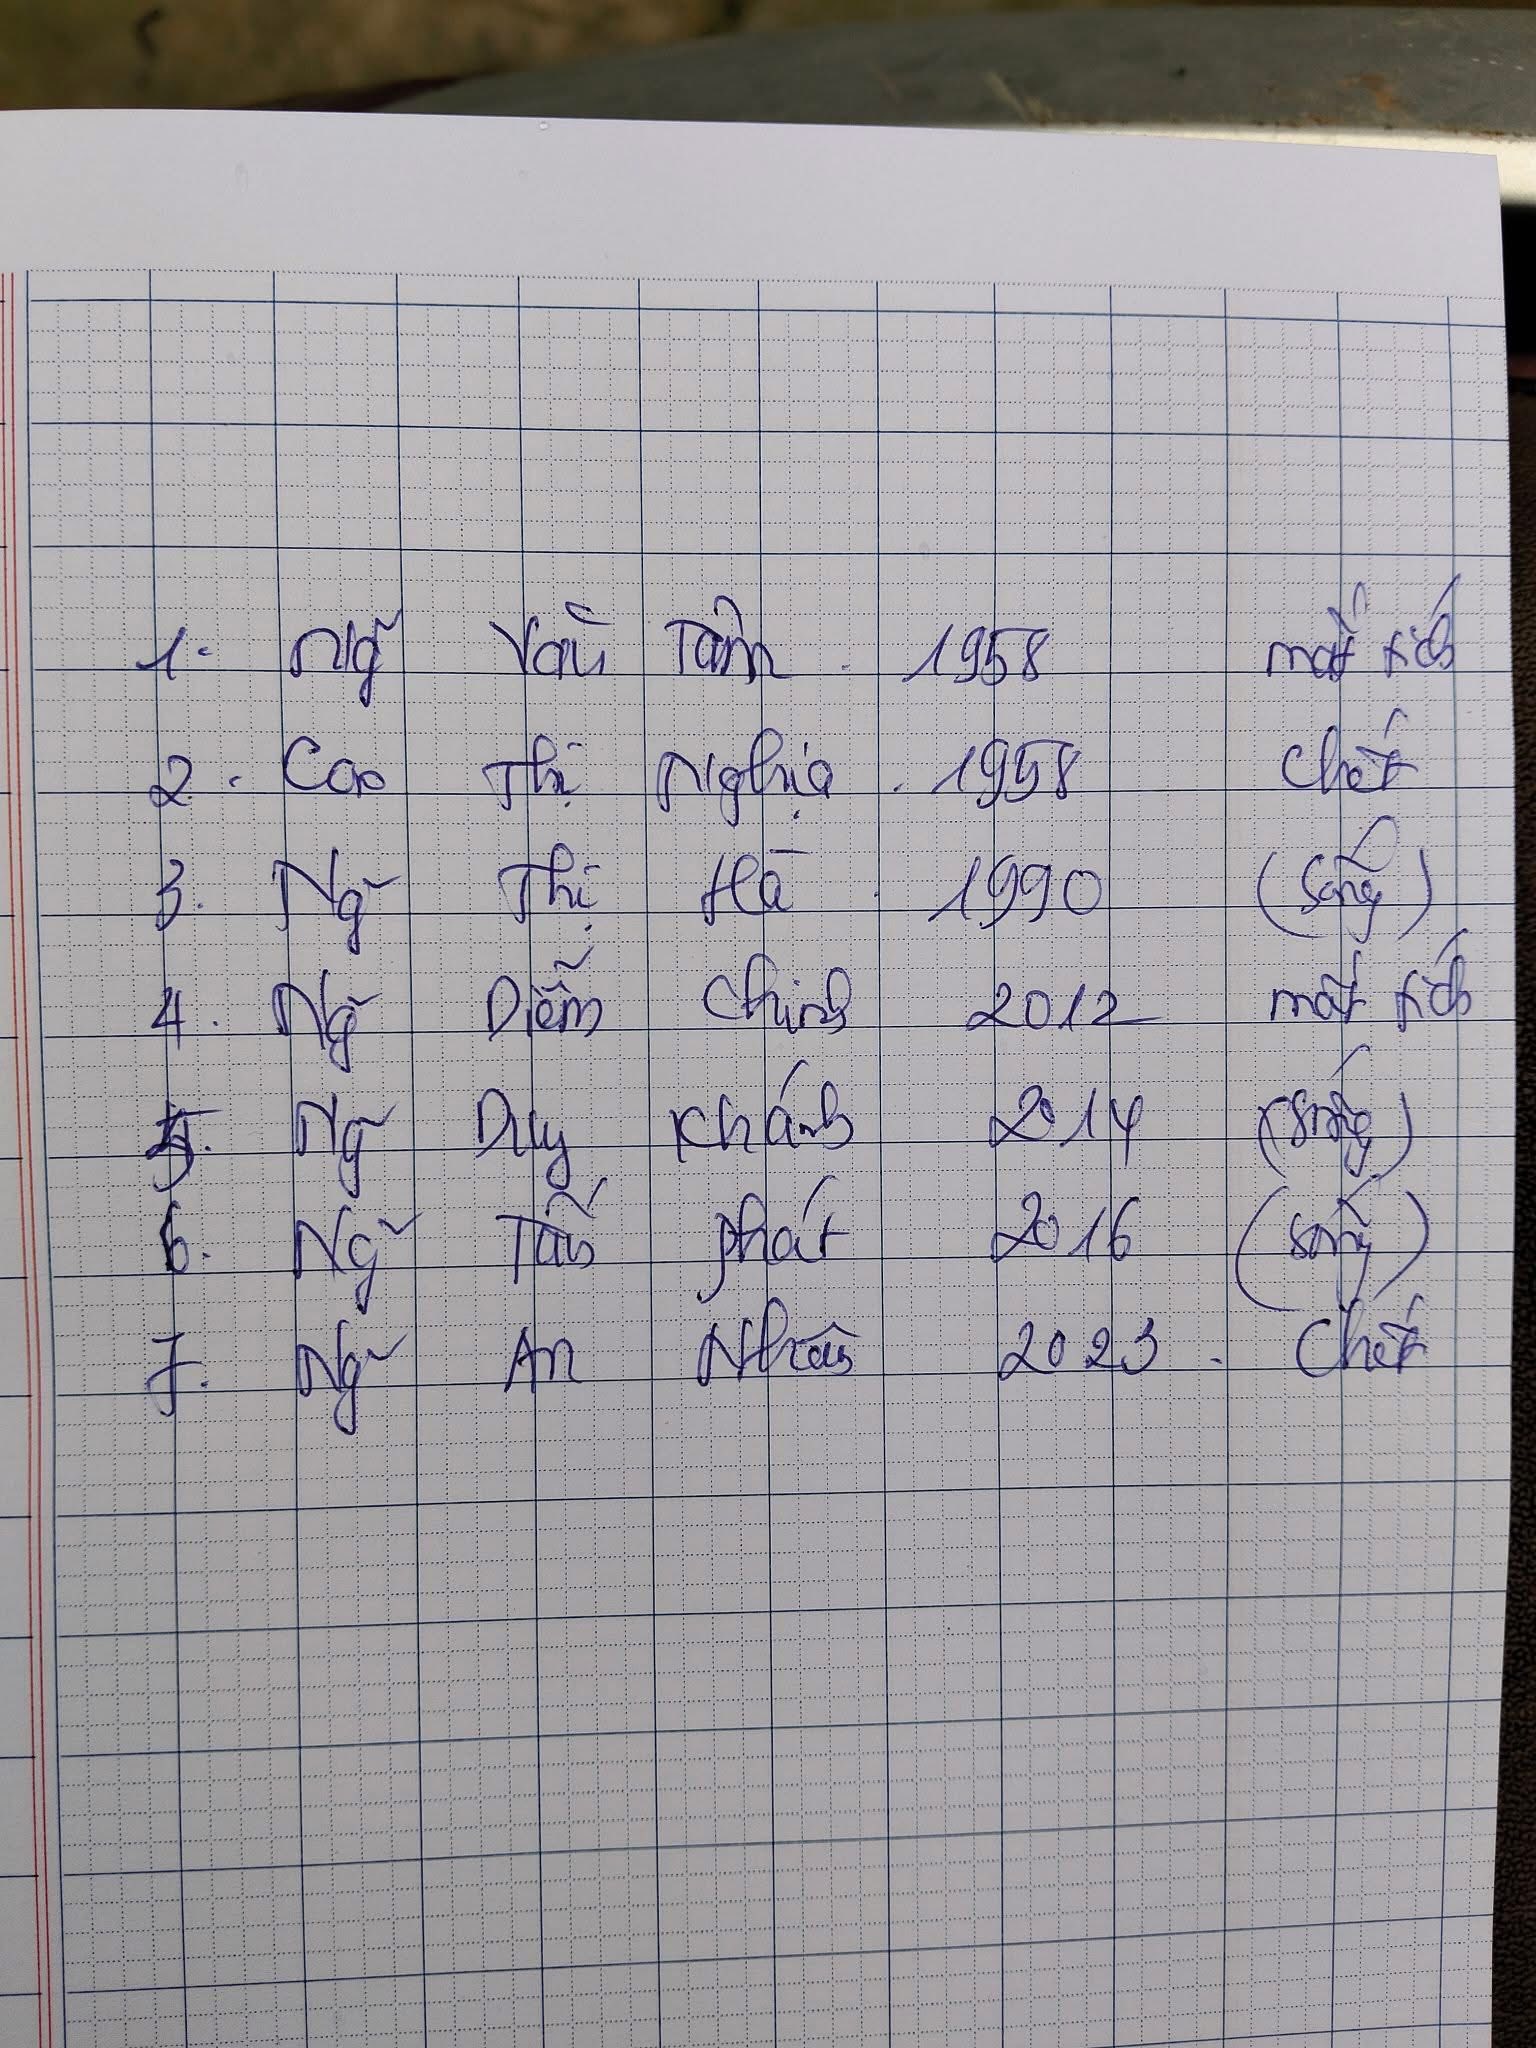 1. Ng̃ Văn Tâm. 1958 mất tích
2. Cao Thị Nghịa. 1958 Chết
3. Ng̃ Thị Hà. 1990 (Sống)
4. Ng̃ Diễm Chinh 2012 mất tích
5. Ng̃ Duy Khánh 2014 (Sống)
6. Ng̃ Tấn phát 2016 (Sống)
7. Ng̃ An Nhiên 2023. Chết